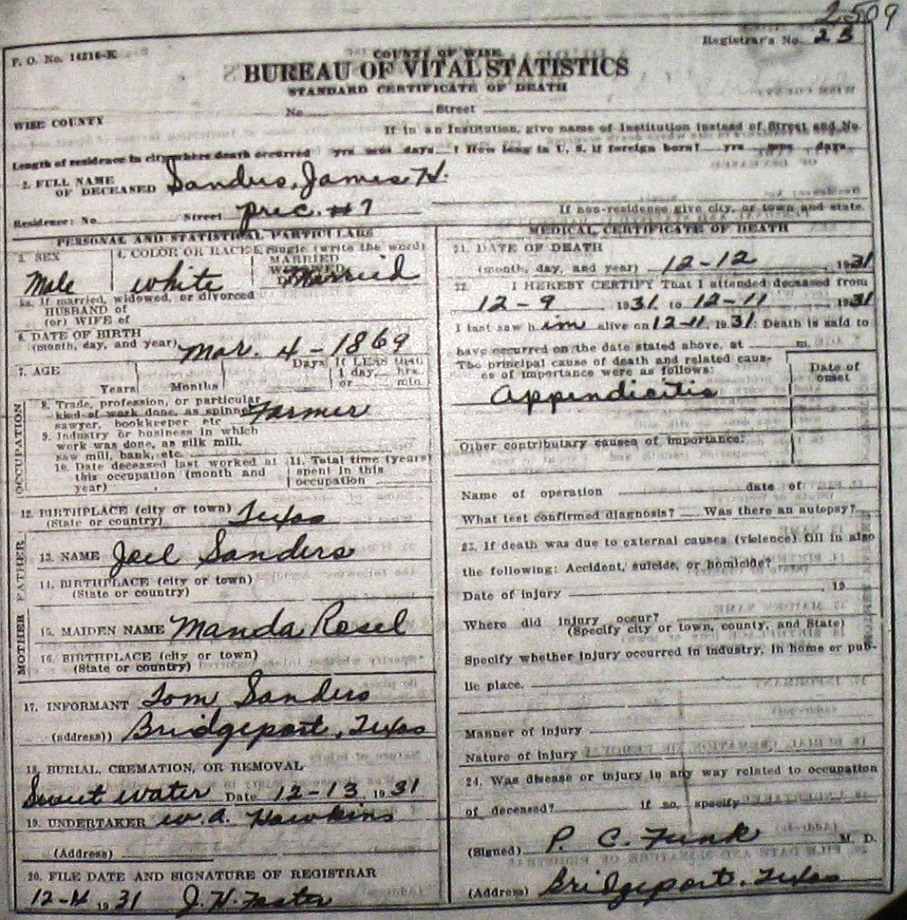 2509
Registrar's No. 23
F. O. No. 14216-K
COUNTY OF WISE
BUREAU OF VITAL STATISTICS
STANDARD CERTIFICATE OF DEATH
No. Street
WISE COUNTY
If in an Institution, give name of Institution instead of Street and No
Length of residence in city where death occurred yrs mos days ? How long in U. S. if foreign born? yrs mos days
2. FULL NAME
OF DECEASED Sanders, James H.
Residence: No. Street prec. #7
If non-residence give city, or town and state.
PERSONAL AND STATISTICAL PARTICULARS
3. SEX
Male
4. COLOR OR RACE
white
5. Single (write the word)
MARRIED
Married
5a. If married, widowed, or divorced
HUSBAND of
(or) WIFE of
6. DATE OF BIRTH
(month, day, and year) Mar. 4 - 1869
7. AGE
Years Months Days If LESS than
1 day, hrs.
or min.
OCCUPATION
8. Trade, profession, or particular
kind of work done, as spinner
sawyer, bookkeeper etc Farmer
9. Industry or business in which
work was done, as silk mill,
saw mill, bank, etc.
10. Date deceased last worked at
this occupation (month and
year)
11. Total time (years)
spent in this
occupation
12. BIRTHPLACE (city or town)
(State or country) Texas
FATHER
13. NAME Joel Sanders
14. BIRTHPLACE (city or town)
(State or country)
MOTHER
15. MAIDEN NAME Manda Rosel
16. BIRTHPLACE (city or town)
(State or country)
17. INFORMANT Tom Sanders
(address)) Bridgeport, Texas
18. BURIAL, CREMATION, OR REMOVAL
Sweet water Date 12-13, 1931
19. UNDERTAKER W. A. Hawkins
(Address)
20. FILE DATE AND SIGNATURE OF REGISTRAR
1931 J. H.
MEDICAL CERTIFICATE OF DEATH
21. DATE OF DEATH
(month, day, and year) 12-12, 1931
22. I HEREBY CERTIFY That I attended deceased from
12-9 1931 to 12-11, 1931
I last saw him alive on 12-11, 1931. Death is said to
have occurred on the date stated above, at m.
The principal cause of death and related caus-
es of importance were as follows:
Date of
onset
Appendicitis
Other contributary causes of importance:
Name of operation date of
What test confirmed diagnosis? Was there an autopsy?
23. If death was due to external causes (violence) fill in also
the following: Accident, suicide, or homicide?
Date of injury 19
Where did injury occur?
(Specify city or town, county, and State)
Specify whether injury occurred in industry, in home or pub-
lic place.
Manner of injury
Nature of injury
24. Was disease or injury in any way related to occupation
of deceased? if so, specify
(Signed) P. C. Funk M. D.
(Address) Bridgeport, Texas